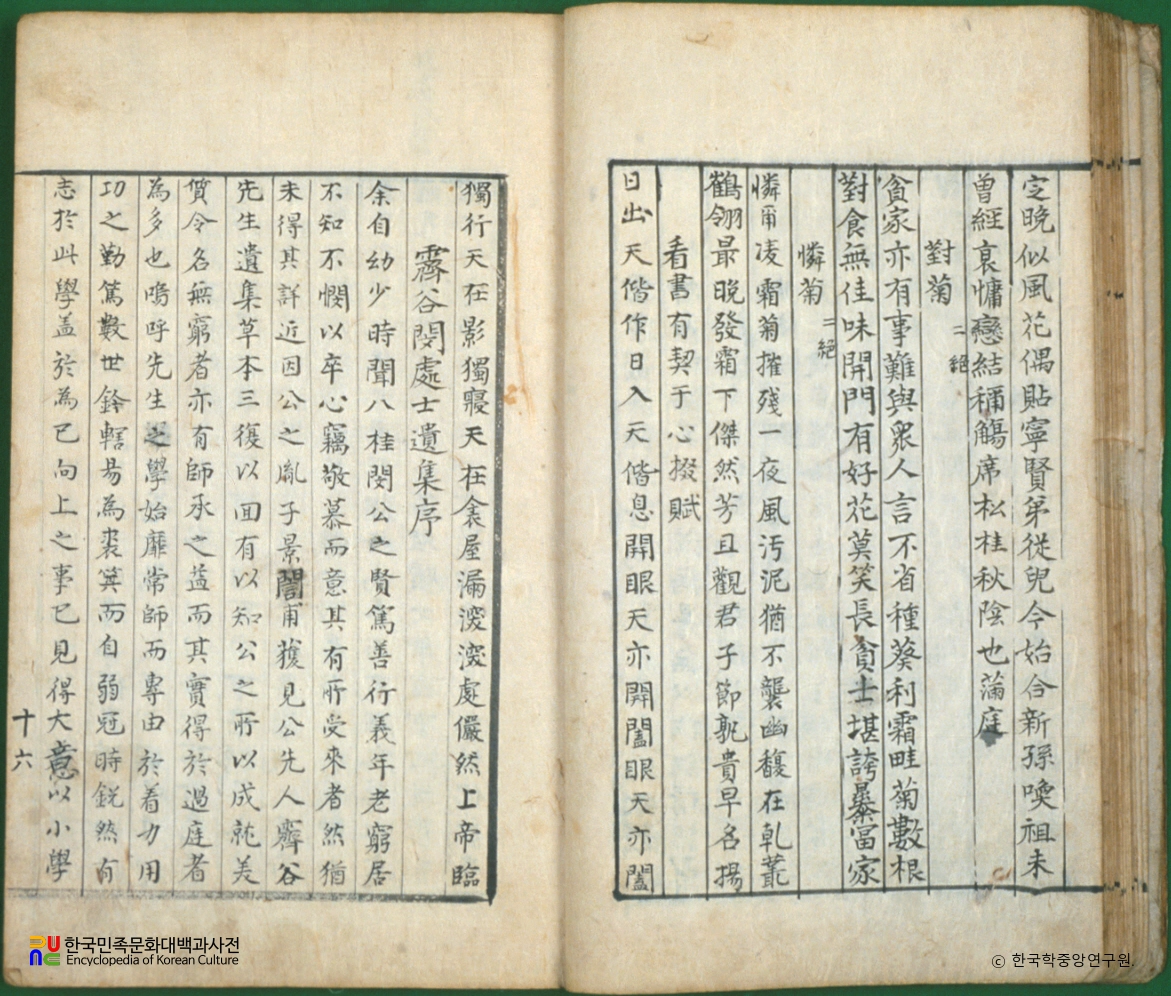 定晩似風花偶貼寧賢弟從兒今始合新孫喚祖未
曾經哀慵戀結稱觴席松桂秋陰也滿庭
對菊 二絕
貧家亦有事難與衆人言不省種葵利霜畦菊數根
對食無佳味開門有好花莫笑長貧士堪誇暴富家
憐菊 二絕
憐甭凌霜菊摧殘一夜風汚泥猶不襲幽馥在乹叢
鶴翎最晩發霜下傑然芳且觀君子節孰貴早名揚
看書有契于心掇賦
日出天偕作日入天偕息開眼天亦開闔眼天亦闔
獨行天在影獨寢天在衾屋漏深深處儼然上帝臨
霽谷閔處士遺集序
余自幼少時聞八桂閔公之賢篤善行義年老窮居
不知不憫以卒心竊敬慕而意其有所受來者然猶
未得其詳近因公之胤子景誾甫獲見公先人霽谷
先生遺集草本三復以回有以知公之所以成就美
質令名無窮者亦有師承之益而其實得於過庭者
為多也嗚呼先生之學始靡常師而專由於着力用
功之勤篤數世鈴轄易為裘箕而自弱冠時銳然有
志於此學盖於為己向上之事已見得大意以小學
十六
한국민족문화대백과사전
Encyclopedia of Korean Culture
ⓒ 한국학중앙연구원.